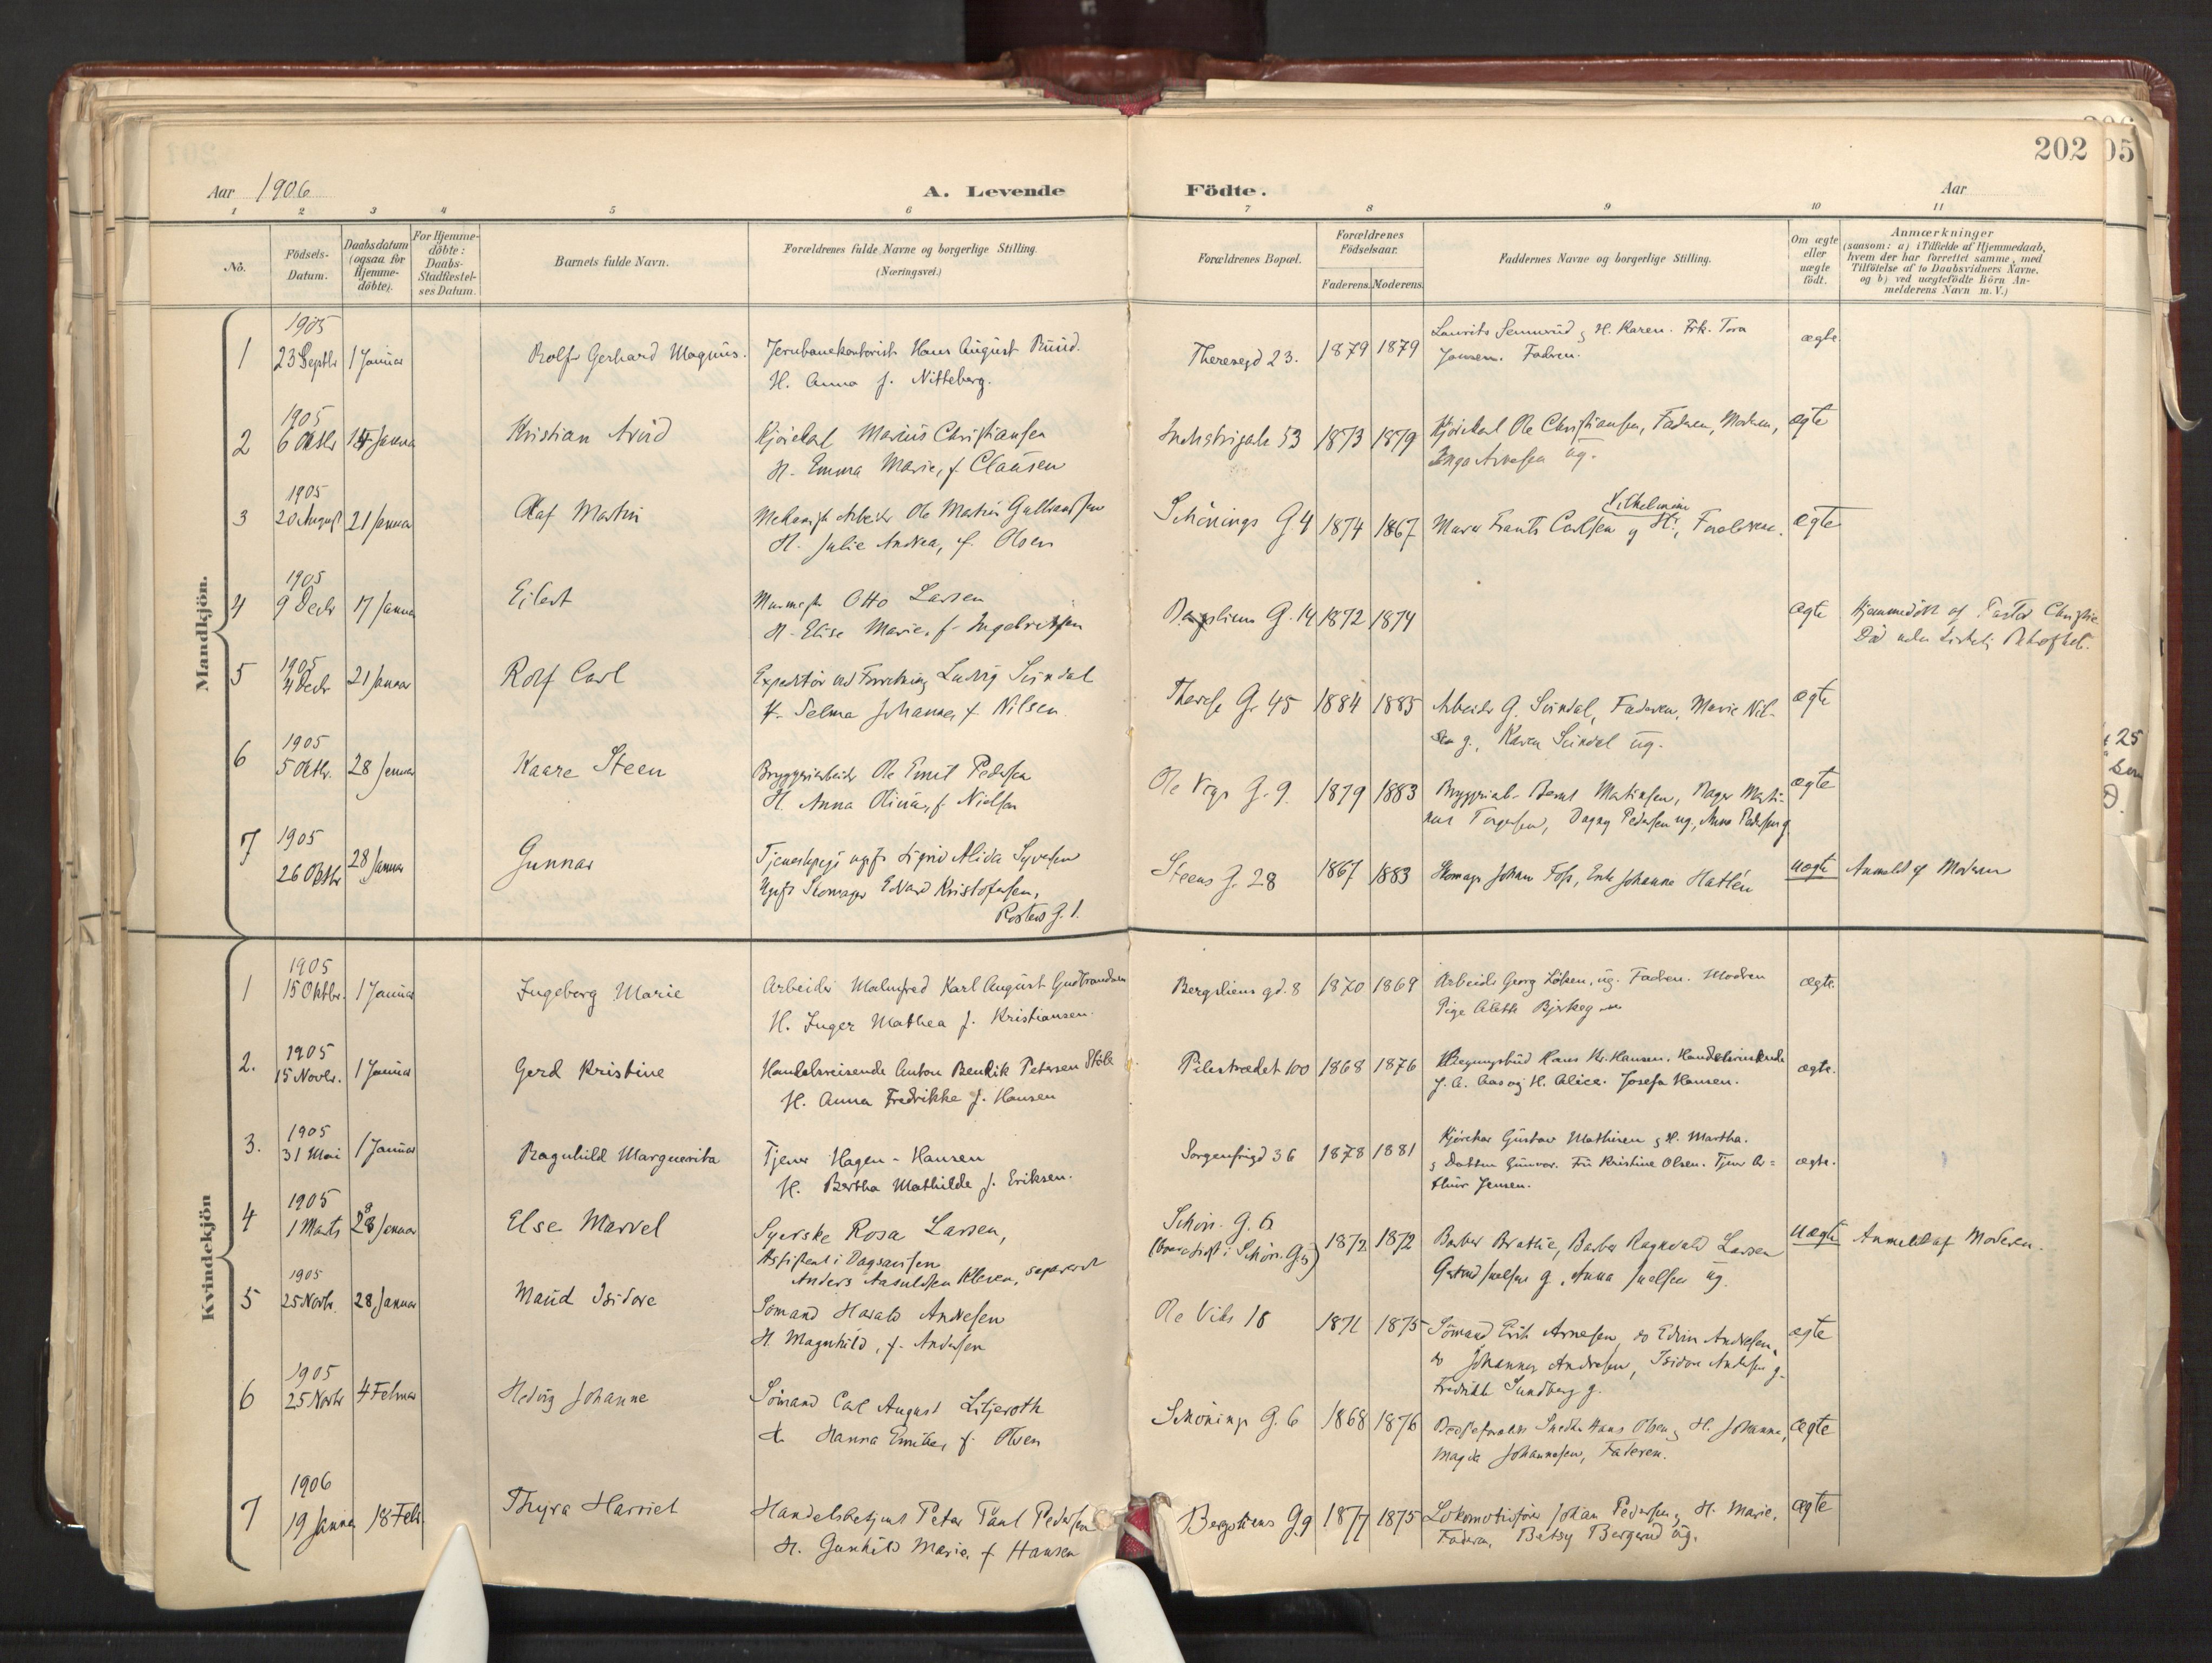 202
05
Aar 1906
A. Levende Födte.
Aar
1 2 3 4 5 6 7 8 9 10 11
No.
Födsels-Datum.
Daabsdatum (ogsaa for Hjemme-döbte).
For Hjemme-döbte: Daabs-Stadfæstel-ses Datum.
Barnets fulde Navn.
Forældrenes fulde Navne og borgerlige Stilling.
(Næringsvei.)
Forældrenes Bopæl.
Forældrenes Födselsaar.
Faderens. Moderens.
Faddernes Navne og borgerlige Stilling.
Om ægte eller uægte födt.
Anmærkninger
(saasom: a) i Tilfælde af Hjemmedaab,
hvem der har forrettet samme, med
Tilföielse af to Daabsvidners Navne,
og b) ved uægtefödte Börn An-
melderens Navn m. V.)
Mandkjön.
1905
1 23 Septbr 1 Januar Rolf Gerhard Magnus. Jernbanekontorist Hans August Ruud. Theresegd 23. 1879 1879 Laurits Sennerud & H. Karen. Frk. Tora ægte
H. Anna f. Nitteberg. Jansen. Fadren.
1905
2 6 Oktbr 14 Januar Kristian Arvid Kjörekarl Marius Christiansen Industrigade 53 1873 1879 Kjörekarl Ole Christiansen, Faderen, Moderen, ægte
H. Emma Marie, f. Clausen Inga Arnesen ug.
1905
3 20 August 21 Januar Olaf Martin Mekanisk Arbeider Ole Martin Schönings G 4 1874 1867 Murer Frants Carlsen og H. Vilhelmine, Forældrene. ægte
H. Julie Andrea, f. Olsen
1905
4 9 Decbr 17 Januar Eilert Otto Larsen Bergsliens G. 14 1872 1874 ægte Hjemmedöbt af Pastor Christie
H. Elise Marie, f. Ingebretsen Död uden kirkelig
1905
5 4 Decbr 21 Januar Rolf Carl Expeditör Ludvig Sundal Therese G. 45 1884 1885 Arbeider G. Sundal, Faderen, Marie Nil-
ægte
H. Selma Johanne, f. Nilsen sen g., Karen Sundal ug.
1905
6 5 Oktbr. 28 Januar Kaare Steen Bryggeriarbeider Ole Emil Pedersen Ole Vigs G. 9 1879 1883 Bryggeriarb. Bernt Martinsen, Bager Marti-
ægte
H. Anna Olivia, f. Nielsen nus Torgersen, Dagny Pedersen ug., Anna Pedersen g
1905
7 26 Oktbr 28 Januar Gunnar Tjenestepige ugift Sigrid Alida Syversen Steens G. 28 1867 1883 Skomager Johan Foss, Enke Johanne Hatlén uægte Anmeldt af Moderen
Ugift Skomager Edvard Kristofersen,
Rosteds G. 1.
Kvindekjön
1905
1 15 Oktbr. 1 Januar Ingeborg Marie Arbeider Malmfred Karl August Gudbrandsen Bergsliens gd. 8 1870 1869 Arbeider Georg Löken, ug. Fadren. Modren ægte.
H. Inger Mathea f. Kristiansen. Pige Aleth
1905
2. 15 Novbr. 1 Januar Gerd Kristine Handelsreisende Anton Bendik Petersen Pilestrædet 100 1868 1876 Hans Kr. Hansen. Handelsreisende ægte.
H. Anna Fredrikke f. Hansen J. A. Aas og H. Alice. Josefa Hansen.
1905
3. 31 Mai 1 Januar Ragnhild Marguerita Tjener Hagen-Hansen Sorgenfrigd 36 1878 1881 Kjörekar Gustav Mathisen & H. Martha. ægte.
H. Bertha Mathilde f. Eriksen. & Datter Gunvor. Fru Kristine Olsen. Tjener Ar=
thur Jensen.
1905
4 1 Marts 28 Januar Else Marvel Syerske Rosa Larsen, Schön. G. 6 1872 1872 Barber Brathie, Barber Ragnvald Larsen uægte Anmeldt af Moderen.
Assistent i Dagsavisen
Anders Aasuldsen Kleven, separeret g., Anna ug.
1905
5 25 Novbr. 28 Januar Maud Isidore Sömand Harald Andresen Ole Vibs 18 1871 1875 Sömand Erik Arnesen, do Edvin Andresen, ægte
H. Magnhild, f. Andersen do Johannes Andresen, Isidore Andersen g.
Fredrikke Sundberg g.
1905
6 25 Novbr 4 Februar Hedvig Johanne Sömand Carl August Liljeroth Schönings G. 6 1868 1876 Bedsteforældre Snedker Hans Olsen & H. Johanne, ægte
H. Hanna Emilie, f. Olsen Magda Johannesen, Faderen.
1906
7 19 Januar 18 Feb. Thyra Harriet Handelsbetjent Peter Paul Pedersen Bergsliens G 9 1877 1875 Lokomotivförer Johan Pedersen & H. Marie, ægte
H. Gunhild Marie, f. Hansen Faderen, Betsy Bergerud ug.